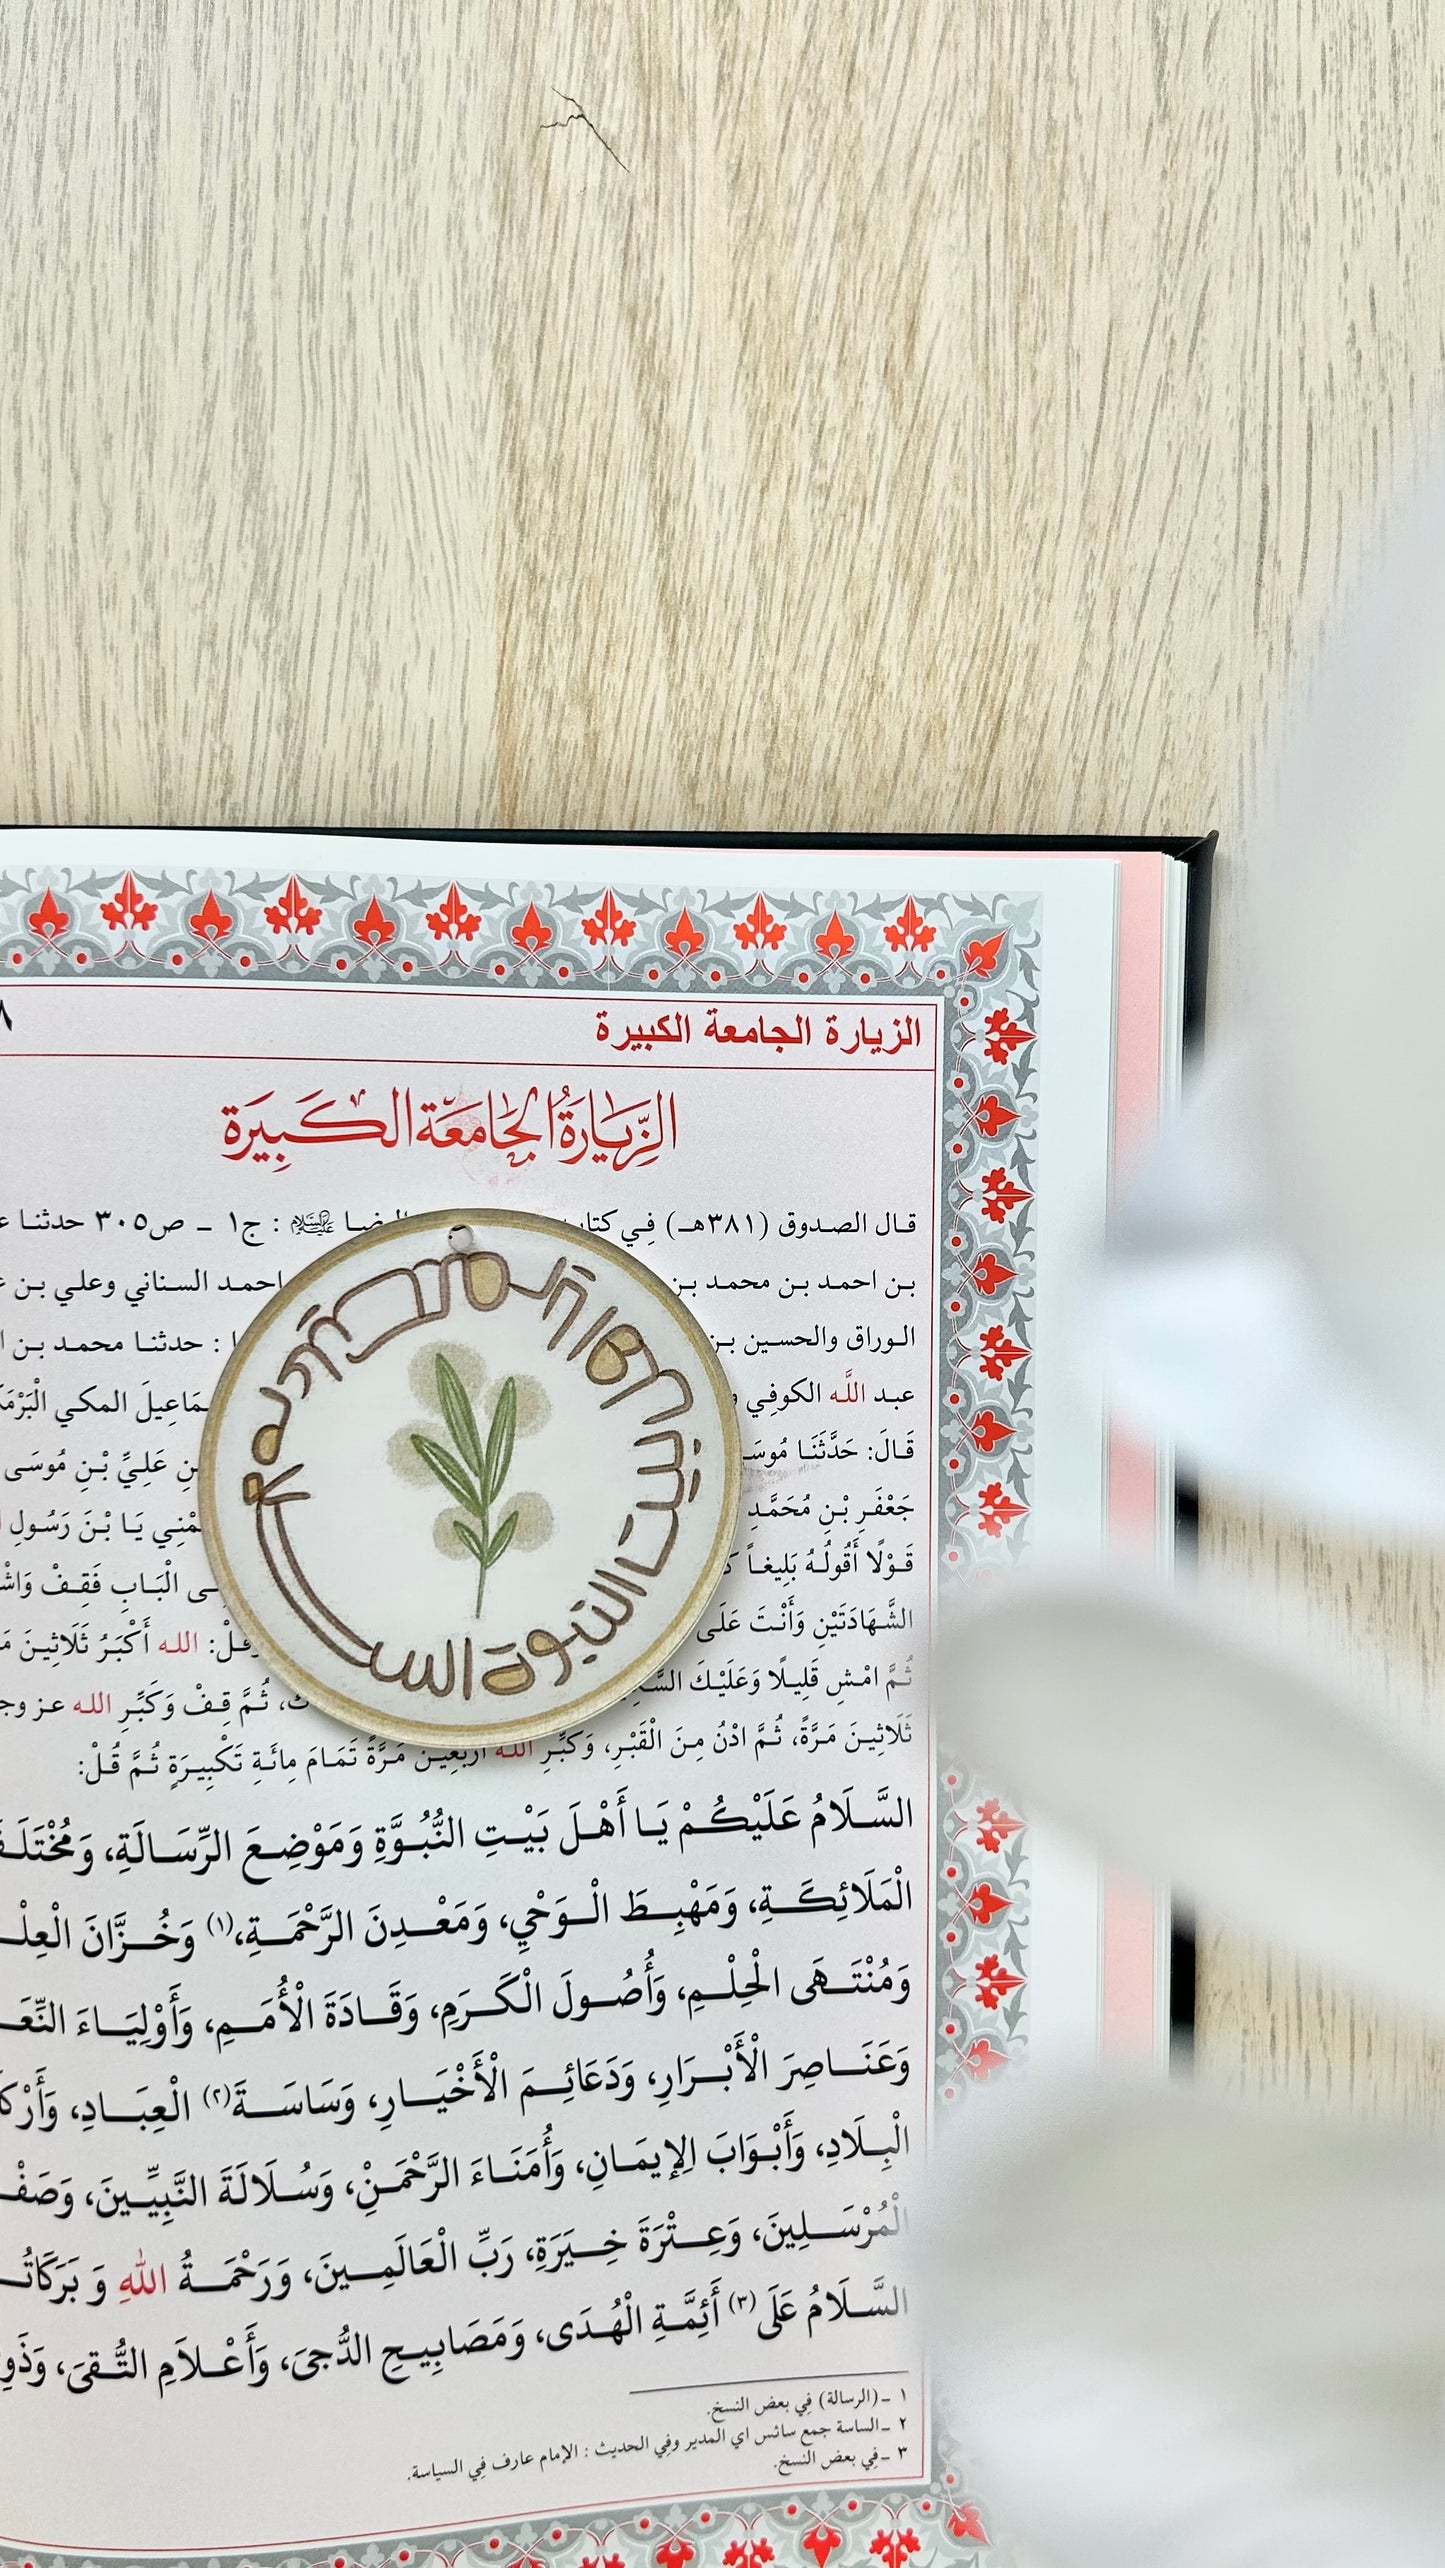 الزيارة الجامعة الكبيرة
الزِّيَارَةُ الجَامَعَة الكَبِيرَة
قال الصدوق (٣٨١هـ) فِي كتاب : ج١ - ص٣٠٥ حدثنا
بن احمد بن محمد بن احمد السناني وعلي بن
الوراق والحسين بن : حدثنا محمد بن
عبد اللَّه الكوفِي المكي
قَالَ: حَدَّثَنَا عَلِيِّ بْنِ مُوسَى
جَعْفَرِ بْنِ مُحَمَّدِ يَا بْنَ رَسُولِ
قَوْلًا أَقُولُهُ بَلِيغاً الْبَابِ فَقِفْ
الشَّهَادَتَيْنِ وَأَنْتَ عَلَى اللـه أَكْبَرُ ثَلَاثِينَ
ثُمَّ امْشِ قَلِيلًا وَعَلَيْكَ ثُمَّ قِفْ وَكَبِّرِ اللـه عز
ثَلَاثِينَ مَرَّةً، ثُمَّ ادْنُ مِنَ الْقَبْرِ، وَكَبِّرِ اللـه أَرْبَعِينَ مَرَّةً تَمَامَ مِائَةِ تَكْبِيرَةٍ ثُمَّ قُلْ:
السلام عليكم يا اهل بيت النبوة
السَّلَامُ عَلَيْكُمْ يَا أَهْلَ بَيْتِ النُّبُوَّةِ وَمَوْضِعَ الرِّسَالَةِ،
الْمَلَائِكَةِ، وَمَهْبِطَ الْوَحْيِ، وَمَعْدِنَ الرَّحْمَةِ،(١) وَخُزَّانَ
وَمُنْتَهَى الْحِلْمِ، وَأُصُولَ الْكَرَمِ، وَقَادَةَ الْأُمَمِ، وَأَوْلِيَاءَ
وَعَنَاصِرَ الْأَبْرَارِ، وَدَعَائِمَ الْأَخْيَارِ، وَسَاسَةَ(٢) الْعِبَادِ،
الْبِلَادِ، وَأَبْوَابَ الِإيمَانِ، وَأُمَنَاءَ الرَّحْمَنْ، وَسُلَالَةَ النَّبِيِّينَ،
الْمُرْسَلِينَ، وَعِتْرَةَ خِيَرَةِ، رَبِّ الْعَالَمِينَ، وَرَحْمَةُ اللهِ وَ
السَّلَامُ عَلَى(٣) أَئِمَّةِ الْهُدَى، وَمَصَابِيحِ الدُّجىَ، وَأَعْلاَمِ التُّقىَ،
١ ـ (الرسالة) فِي بعض النسخ.
٢ ـ الساسة جمع سائس اي المدير وفِي الحديث : الإمام عارف فِي السياسة.
٣ ـ فِي بعض النسخ.